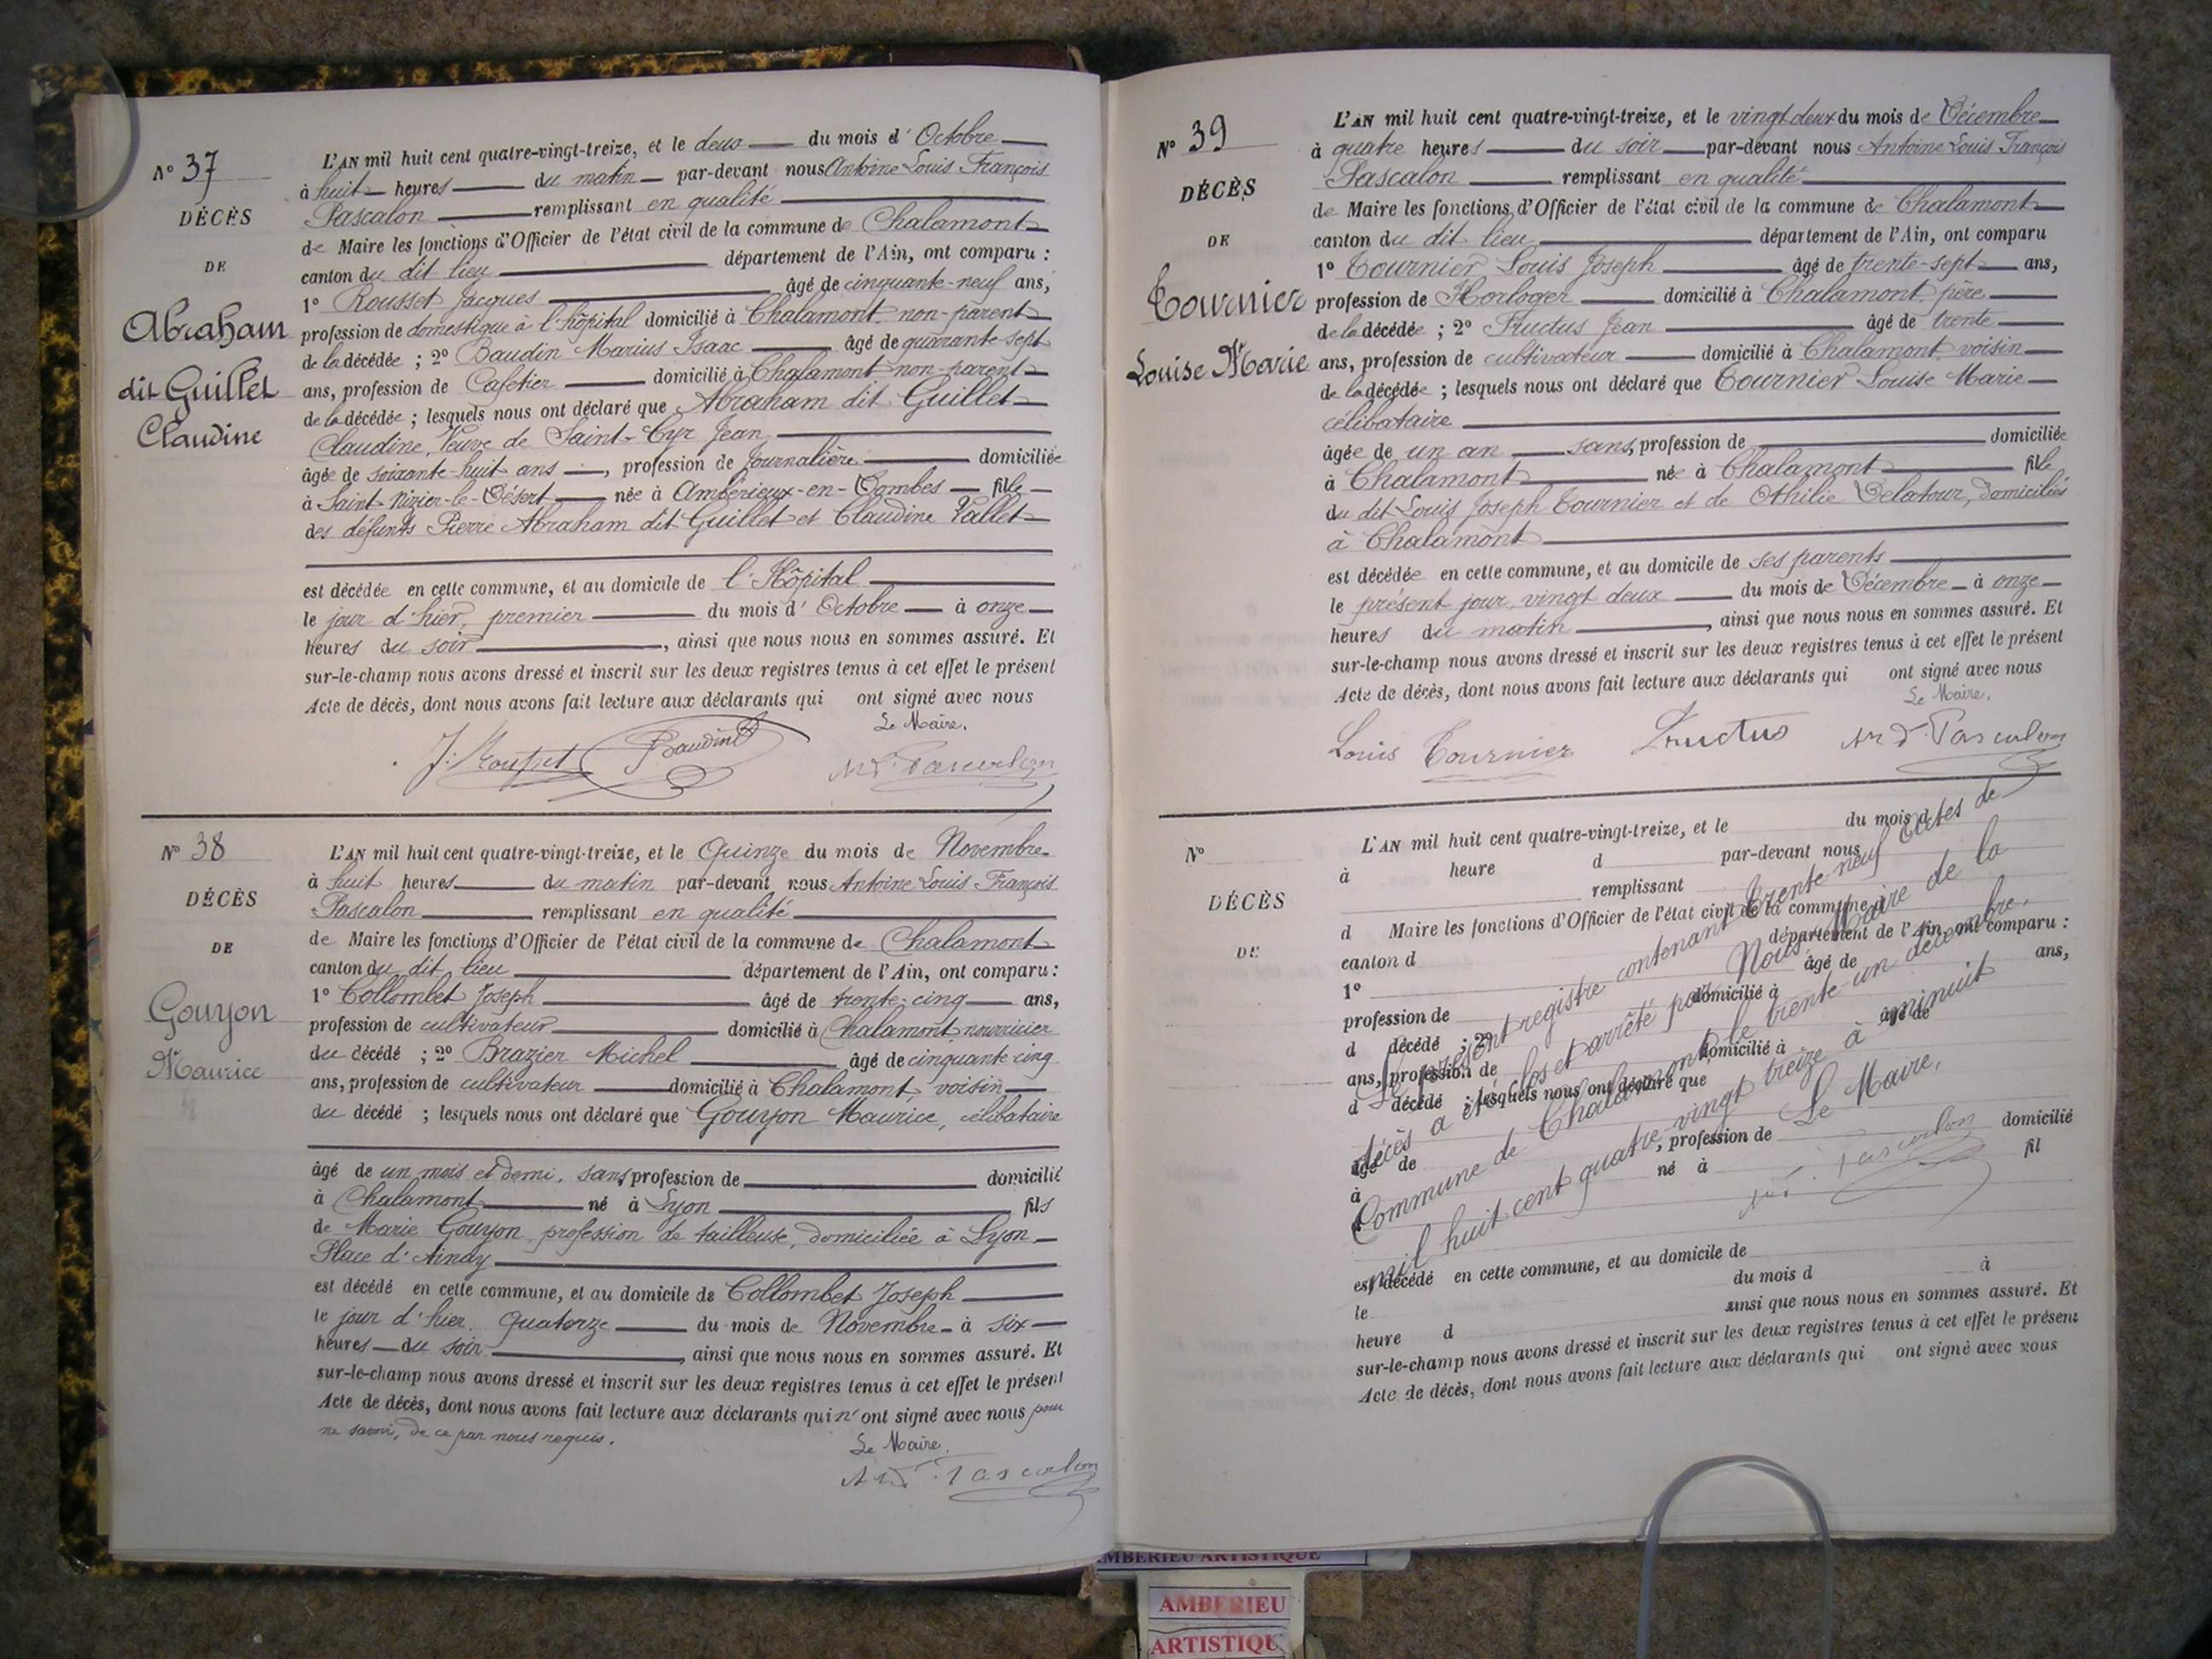 N° 37
DÉCÈS
DE
Abraham
dit Guillet
Claudine
L'AN mil huit cent quatre-vingt-treize, et le deux du mois d' Octobre
à huit heures du matin par-devant nous Antoine Louis François
Pascalon remplissant en qualité
de Maire les fonctions d'Officier de l'état civil de la commune de Chalamont
canton du dit lieu département de l'Ain, ont comparu :
1° Rousset Jacques âgé de cinquante-neuf ans,
profession de domestique à l'hôpital domicilié à Chalamont non-parent
de la décédée ; 2° Baudin Marius Isaac âgé de quarante-sept
ans, profession de Cafetier domicilié à Chalamont non-parent
de la décédée ; lesquels nous ont déclaré que Abraham dit Guillet
Claudine, Veuve de Saint-Cyr Jean
âgée de soixante-huit ans, profession de Journalière domiciliée
à Saint-Nizier-le-Désert née à Ambérieux-en-Dombes fille
des défunts Pierre Abraham dit Guillet et Claudine Vallet
est décédée en cette commune, et au domicile de l'Hôpital
le jour d'hier, premier du mois d' Octobre à onze
heures du soir, ainsi que nous nous en sommes assuré. Et
sur-le-champ nous avons dressé et inscrit sur les deux registres tenus à cet effet le présent
Acte de décès, dont nous avons fait lecture aux déclarants qui ont signé avec nous
Le Maire.
J. Rousset Baudin Pascalon
N° 38
DÉCÈS
DE
Gouyon
Maurice
L'AN mil huit cent quatre-vingt-treize, et le Quinze du mois de Novembre
à huit heures du matin par-devant nous Antoine Louis François
Pascalon remplissant en qualité
de Maire les fonctions d'Officier de l'état civil de la commune de Chalamont
canton du dit lieu département de l'Ain, ont comparu :
1° Collombet Joseph âgé de trente-cinq ans,
profession de cultivateur domicilié à Chalamont, nourricier
du décédé ; 2° Brazier Michel âgé de cinquante cinq
ans, profession de cultivateur domicilié à Chalamont voisin
du décédé ; lesquels nous ont déclaré que Gouyon Maurice, célibataire
âgé de un mois et demi, sans profession de domicilié
à Chalamont né à Lyon fils
de Marie Gouyon profession de tailleuse, domiciliée à Lyon
Place d'Ainay
est décédé en cette commune, et au domicile de Collombet Joseph
le jour d'hier Quatorze du mois de Novembre à six
heures du soir, ainsi que nous nous en sommes assuré. Et
sur-le-champ nous avons dressé et inscrit sur les deux registres tenus à cet effet le présent
Acte de décès, dont nous avons fait lecture aux déclarants qui n'ont signé avec nous pour
ne savoir, de ce par nous requis.
Le Maire.
Pascalon
N° 39
DÉCÈS
DE
Tournier
Louise Marie
L'AN mil huit cent quatre-vingt-treize, et le vingt deux du mois de Décembre
à quatre heures du soir par-devant nous Antoine Louis François
Pascalon remplissant en qualité
de Maire les fonctions d'Officier de l'état civil de la commune de Chalamont
canton du dit lieu département de l'Ain, ont comparu
1° Tournier Louis Joseph âgé de trente-sept ans,
profession de Horloger domicilié à Chalamont, père
de la décédée ; 2° Fructus Jean âgé de trente
ans, profession de cultivateur domicilié à Chalamont voisin
de la décédée ; lesquels nous ont déclaré que Tournier Louise Marie
célibataire
âgée de un an sans, profession de domiciliée
à Chalamont née à Chalamont fille
du dit Louis Joseph Tournier et de Othilie Delatour, domiciliés
à Chalamont
est décédée en cette commune, et au domicile de ses parents
le présent jour, vingt deux du mois de Décembre à onze
heures du matin, ainsi que nous nous en sommes assuré. Et
sur-le-champ nous avons dressé et inscrit sur les deux registres tenus à cet effet le présent
Acte de décès, dont nous avons fait lecture aux déclarants qui ont signé avec nous
Le Maire.
Louis Tournier Fructus Pascalon
N°
DÉCÈS
DE
L'AN mil huit cent quatre-vingt-treize, et le du mois d
à heure d par-devant nous
remplissant
d Maire les fonctions d'Officier de l'état civil de la commune d
canton d département de l'Ain, ont comparu :
1° âgé de ans,
profession de domicilié à
d décédé ; 2° âgé de
ans, profession de domicilié à
d décédé ; lesquels nous ont déclaré que
âgé de , profession de domicilié
à né à fil
d
est décédé en cette commune, et au domicile de
le du mois d à
heure d ainsi que nous nous en sommes assuré. Et
sur-le-champ nous avons dressé et inscrit sur les deux registres tenus à cet effet le présent
Acte de décès, dont nous avons fait lecture aux déclarants qui ont signé avec nous
Le présent registre contenant trente-neuf actes de
décès a été clos et arrêté par Nous Maire de la
Commune de Chalamont le trente-un décembre
mil huit cent quatre-vingt treize à minuit
Le Maire,
Pascalon
AMBERIEU ARTISTIQUE
AMBERIEU
ARTISTIQU